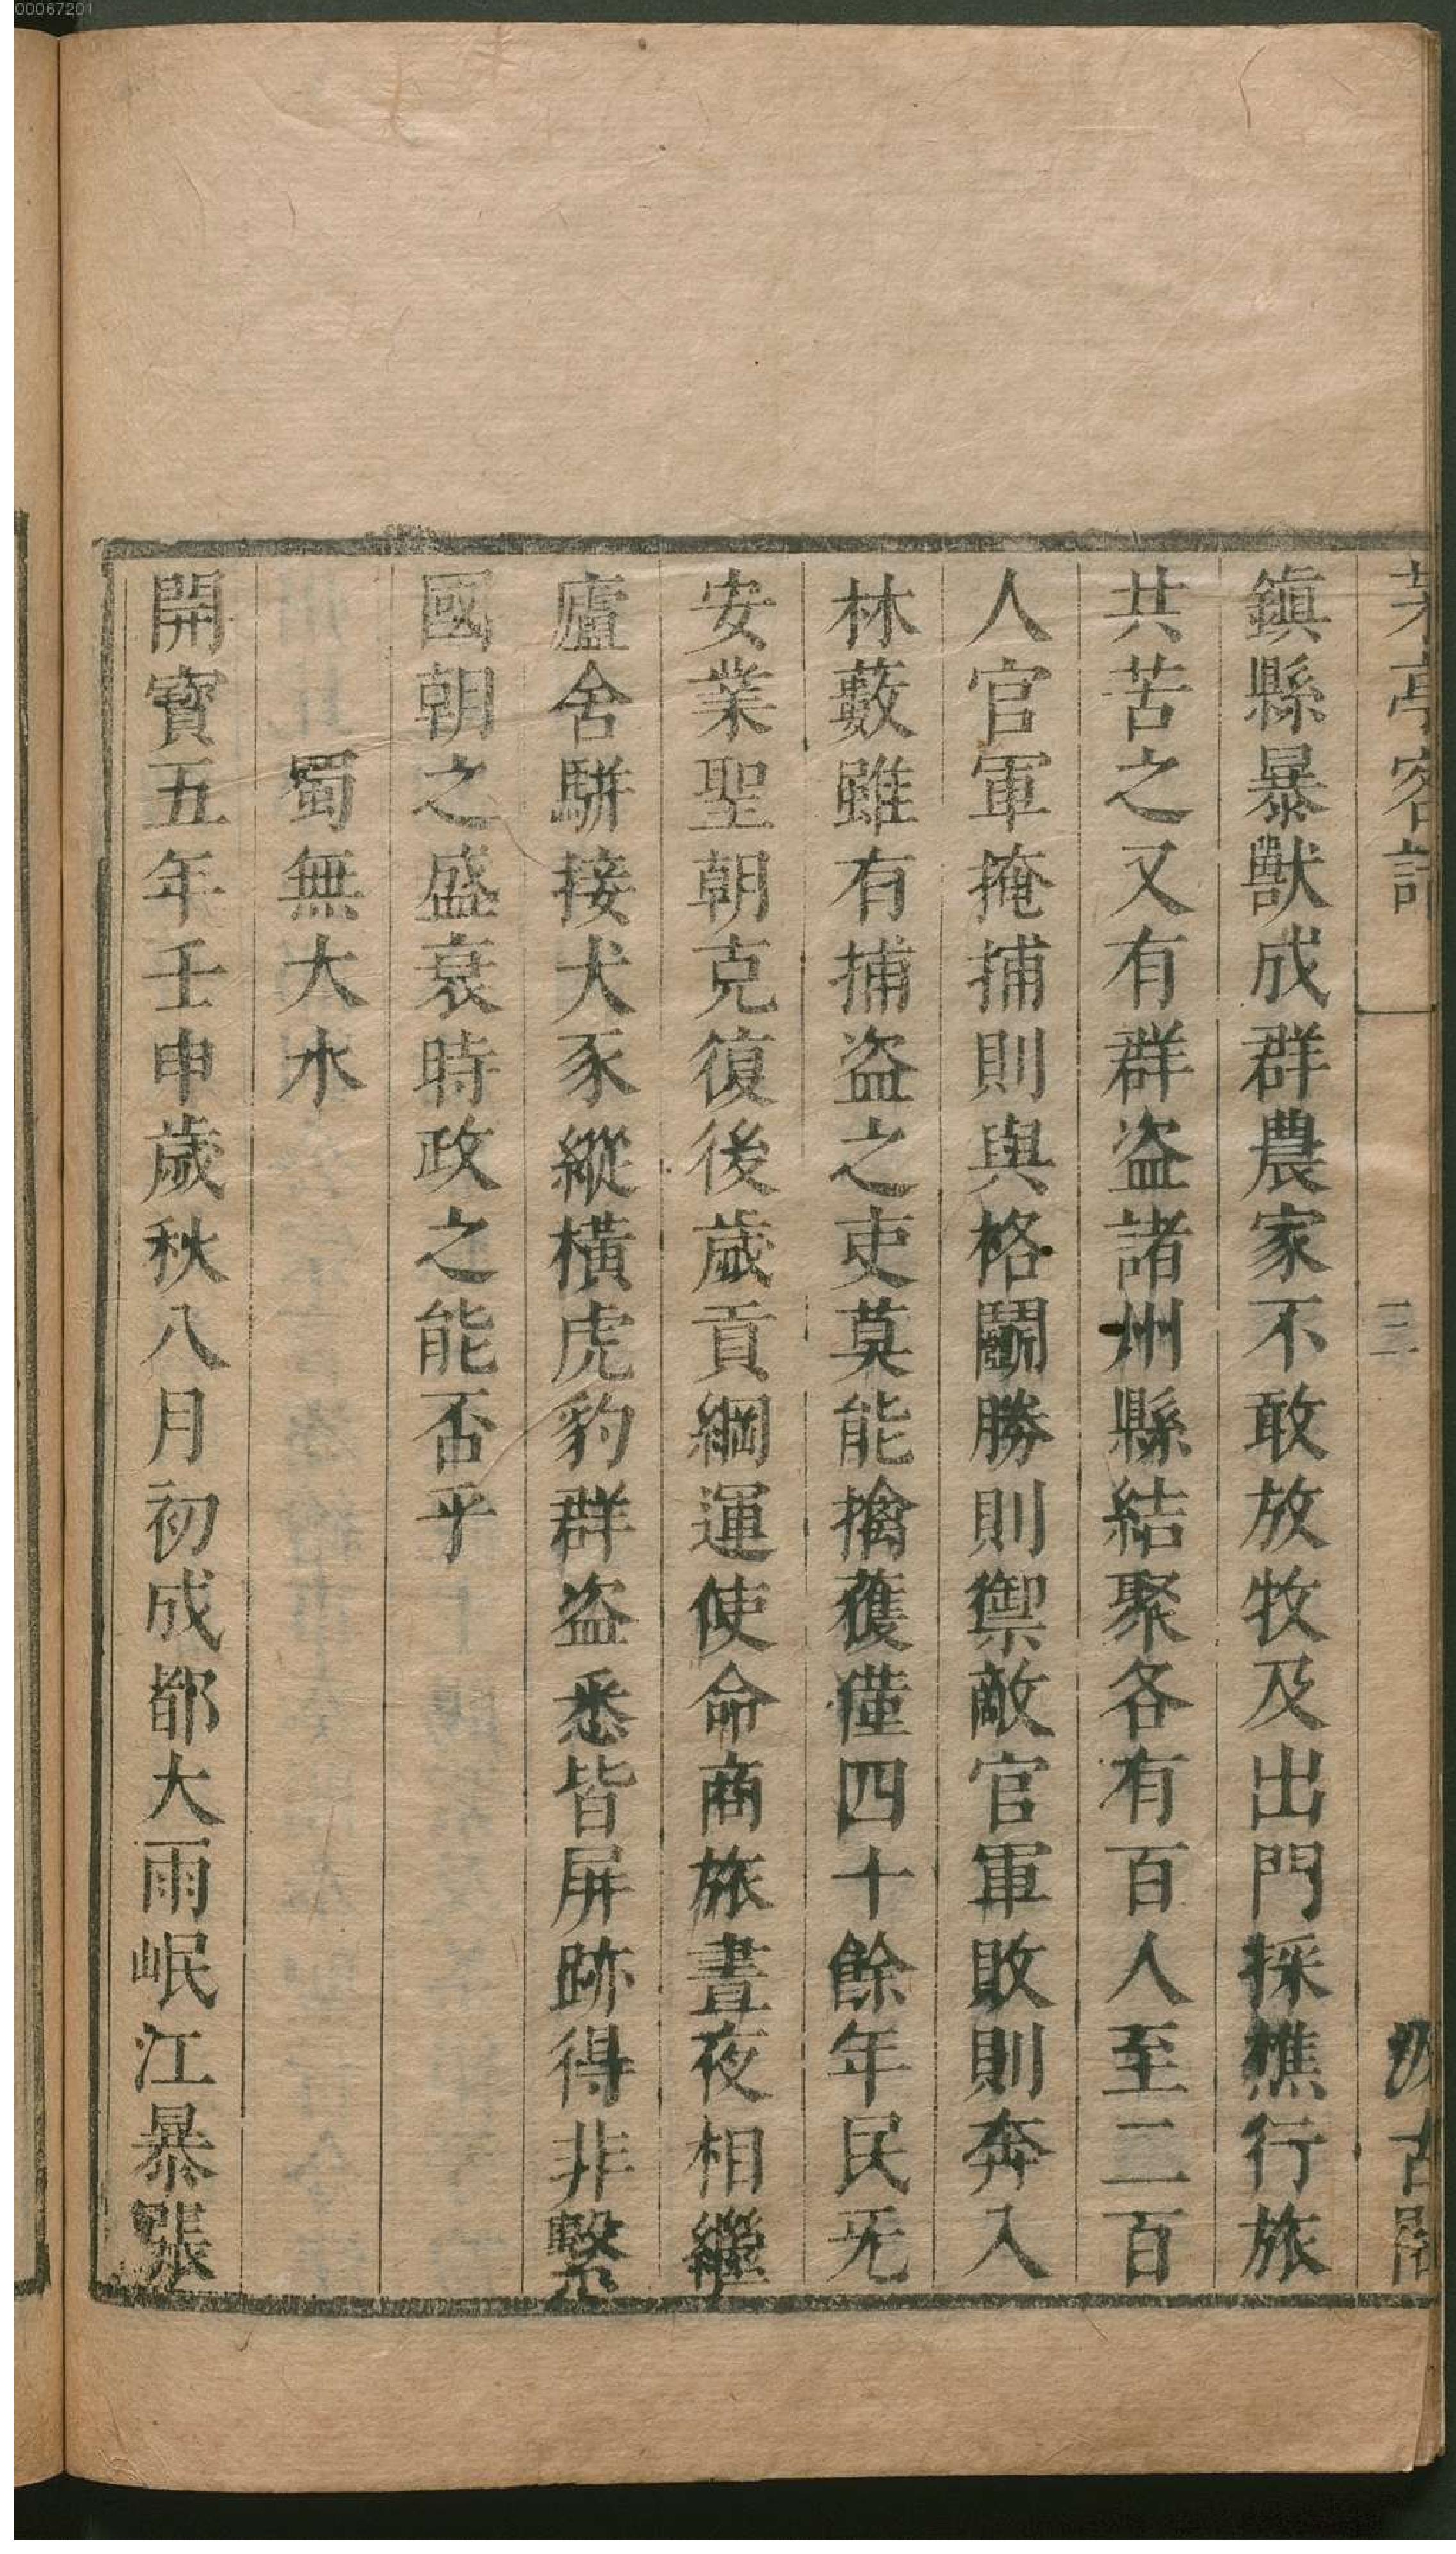 00067201
茅亭客話
三
汲古閣
鎮縣暴獸成群農家不敢放牧及出門採樵行旅
共苦之又有群盜諸州縣結聚各有百人至二百
人官軍掩捕則與格鬭勝則禦敵官軍敗則奔入
林藪雖有捕盜之吏莫能擒獲僅四十餘年民无
安業聖朝克復後歲貢綱運使命商旅晝夜相繼
廬舍駢接犬豕縱橫虎豹群盜悉皆屏跡得非繫
國朝之盛衰時政之能否乎
蜀無大水
開寶五年壬申歲秋八月初成都大雨岷江暴漲